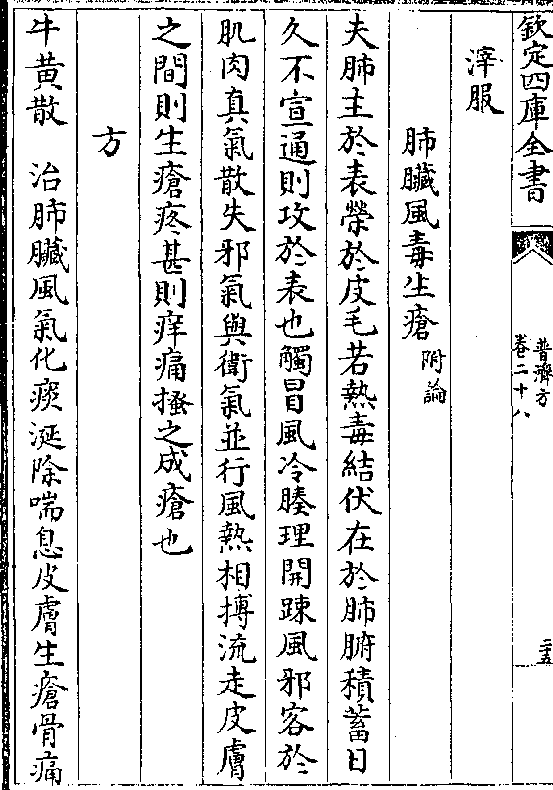 欽定四庫全書
普濟方
卷二十八
二五
滓服
肺臟風毒生瘡附論
夫肺主於表榮於皮毛若熱毒結伏在於肺腑積蓄日
久不宣通則攻於表也觸冒風冷腠理開踈風邪客於
肌肉真氣散失邪氣與衛氣並行風熱相搏流走皮膚
之間則生瘡疼甚則痒痛搔之成瘡也
方
牛黄散 治肺臟風氣化痰涎除喘息皮膚生瘡骨痛